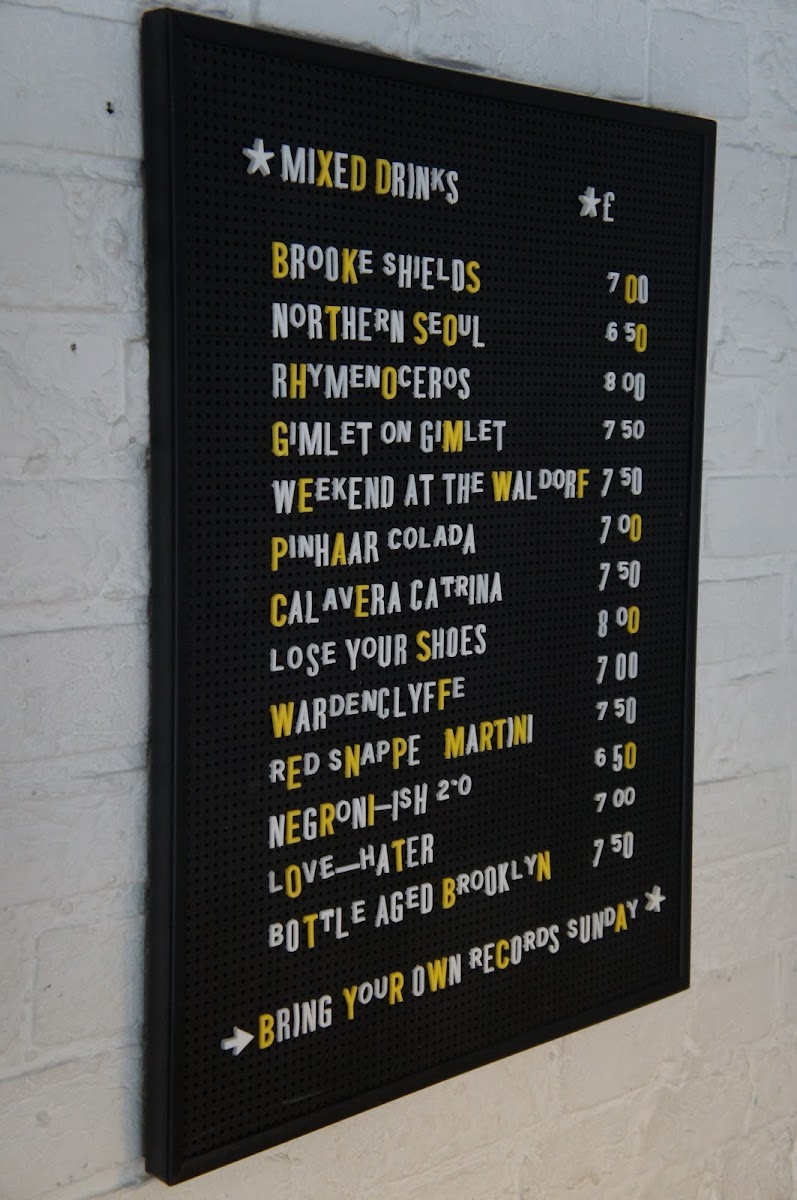 *MIXED DRINKS *£
BROOKE SHIELDS 7 00
NORTHERN SEOUL 6 50
RHYMENOCEROS 8 00
GIMLET ON GIMLET 7 50
WEEKEND AT THE WALDORF 7 50
PINHAAR COLADA 7 00
CALAVERA CATRINA 7 50
LOSE YOUR SHOES 8 00
WARDENCLYFFE 7 00
RED SNAPPE MARTINI 7 50
NEGRONI-ISH 2·0 6 50
LOVE-HATER 7 00
BOTTLE AGED BROOKLYN 7 50
→BRING YOUR OWN RECORDS SUNDAY*